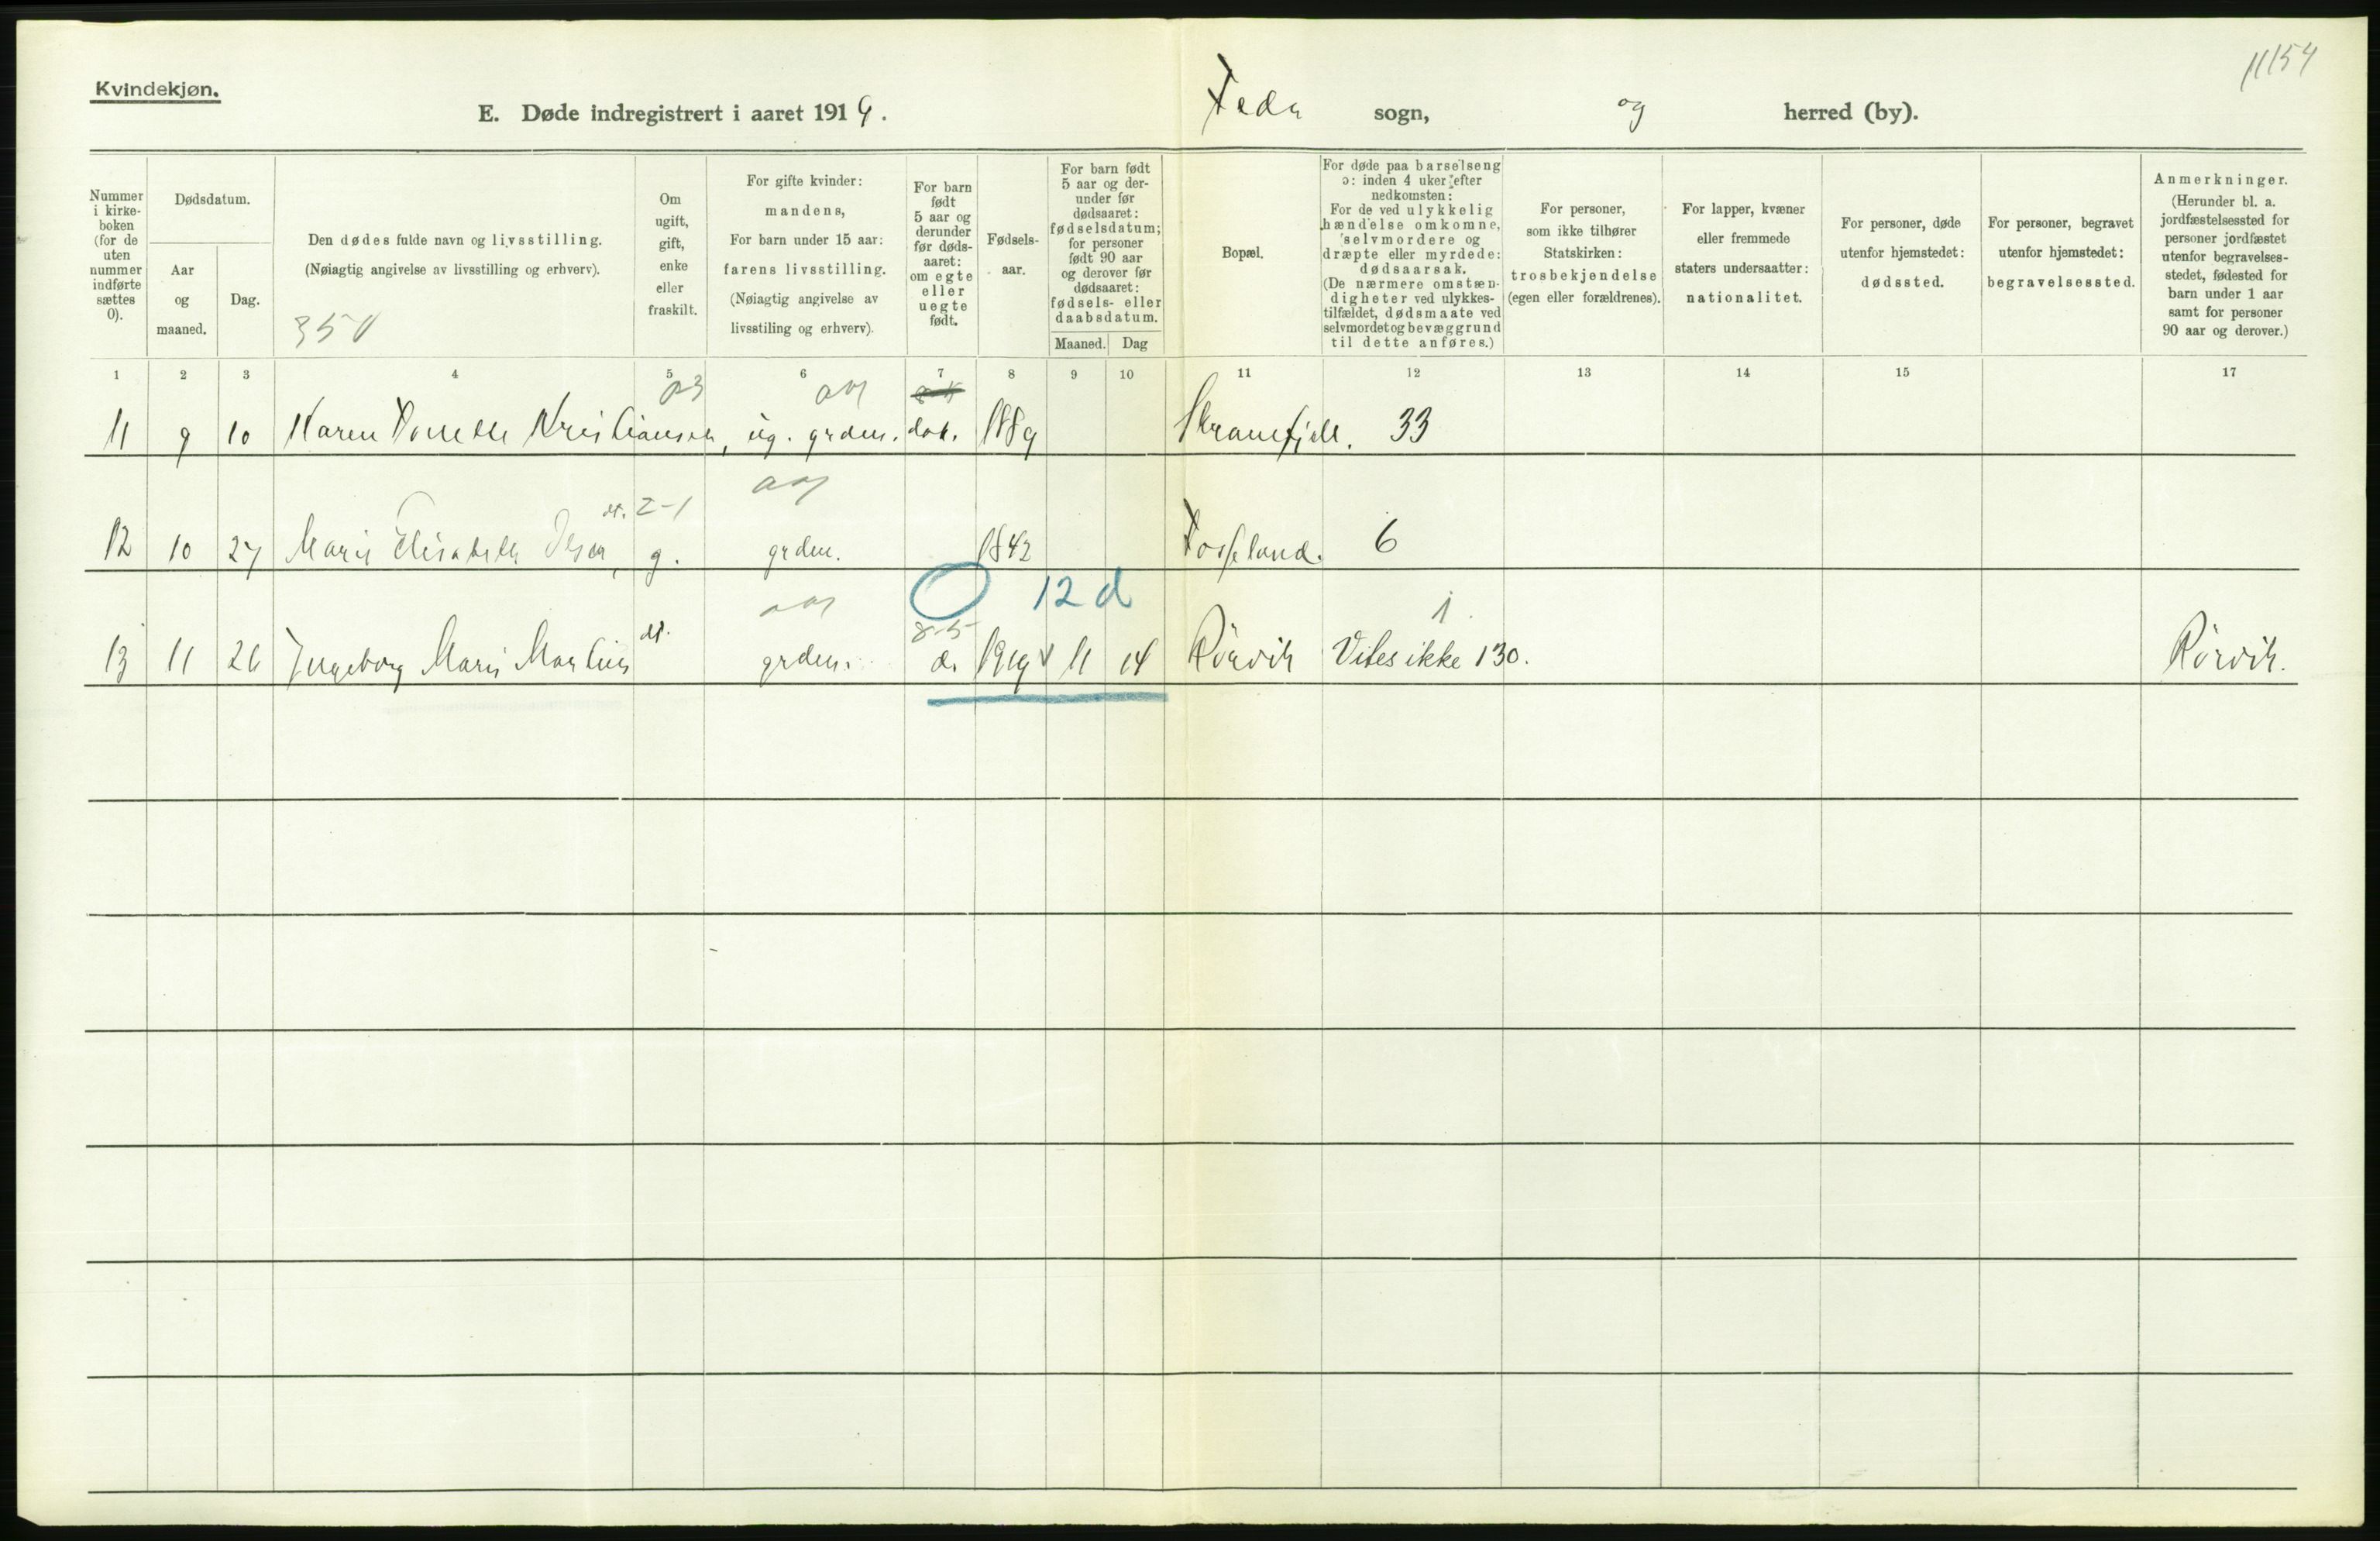 Kvindekjøn.
11154
E. Døde indregistrert i aaret 1919.
Feda sogn, og herred (by).
Nummer i kirkeboken (for de uten nummer indførte sættes 0).
Dødsdatum.
Aar og maaned.
Dag.
Den dødes fulde navn og livsstilling.
(Nøiagtig angivelse av livsstilling og erhverv).
350
Om ugift, gift, enke eller fraskilt.
For gifte kvinder: mandens,
For barn under 15 aar: farens livsstilling.
(Nøiagtig angivelse av livsstiling og erhverv).
For barn født 5 aar og derunder før dødsaaret: om egte eller uegte født.
Fødselsaar.
For barn født 5 aar og derunder før dødsaaret: fødselsdatum; for personer født 90 aar og derover før dødsaaret: fødsels- eller daabsdatum.
Maaned. Dag
Bopæl.
For døde paa barselseng ɔ: inden 4 uker efter nedkomsten:
For de ved ulykkelig hændelse omkomne, selvmordere og dræpte eller myrdede: dødsaarsak.
(De nærmere omstændigheter ved ulykkestilfældet, dødsmaate ved selvmordet og bevæggrund til dette anføres.)
For personer, som ikke tilhører Statskirken: trosbekjendelse (egen eller forældrenes).
For lapper, kvæner eller fremmede staters undersaatter: nationalitet.
For personer, døde utenfor hjemstedet: dødssted.
For personer, begravet utenfor hjemstedet: begravelsessted.
Anmerkninger.
(Herunder bl. a. jordfæstelsessted for personer jordfæstet utenfor begravelsesstedet, fødested for barn under 1 aar samt for personer 90 aar og derover.)
1 2 3 4 5 6 7 8 9 10 11 12 13 14 15 17
11 9 10 Karen Kristiansen, ug. grdm. dat. 1889 33
dt. 2-1
12 10 27 Marie Elisabeth Olsen, g. grdm. 1842 Fosseland. 6
12 d
8-5 1
13 11 26 Ingeborg Marie dt. grdm. d. 1919 11 14 Rörvik Vites ikke 130. Rörvik.